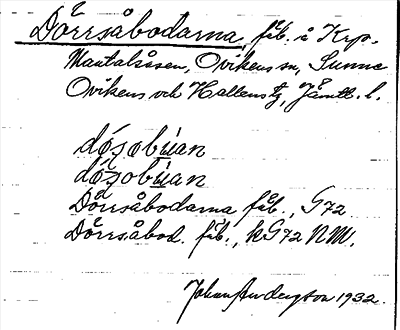 Dörrsåbodarna, fäb. å Krp.
Mantalsåsen, Ovikens sn, Sunne
Ovikens och Hallens tg, Jämtl. l.
dóʒobùan
dóʒobùan
Dörrsåbodarna fäb., G72
Dörrsåbod. fäb., kG72 NM.
Johan Anderzson 1932.